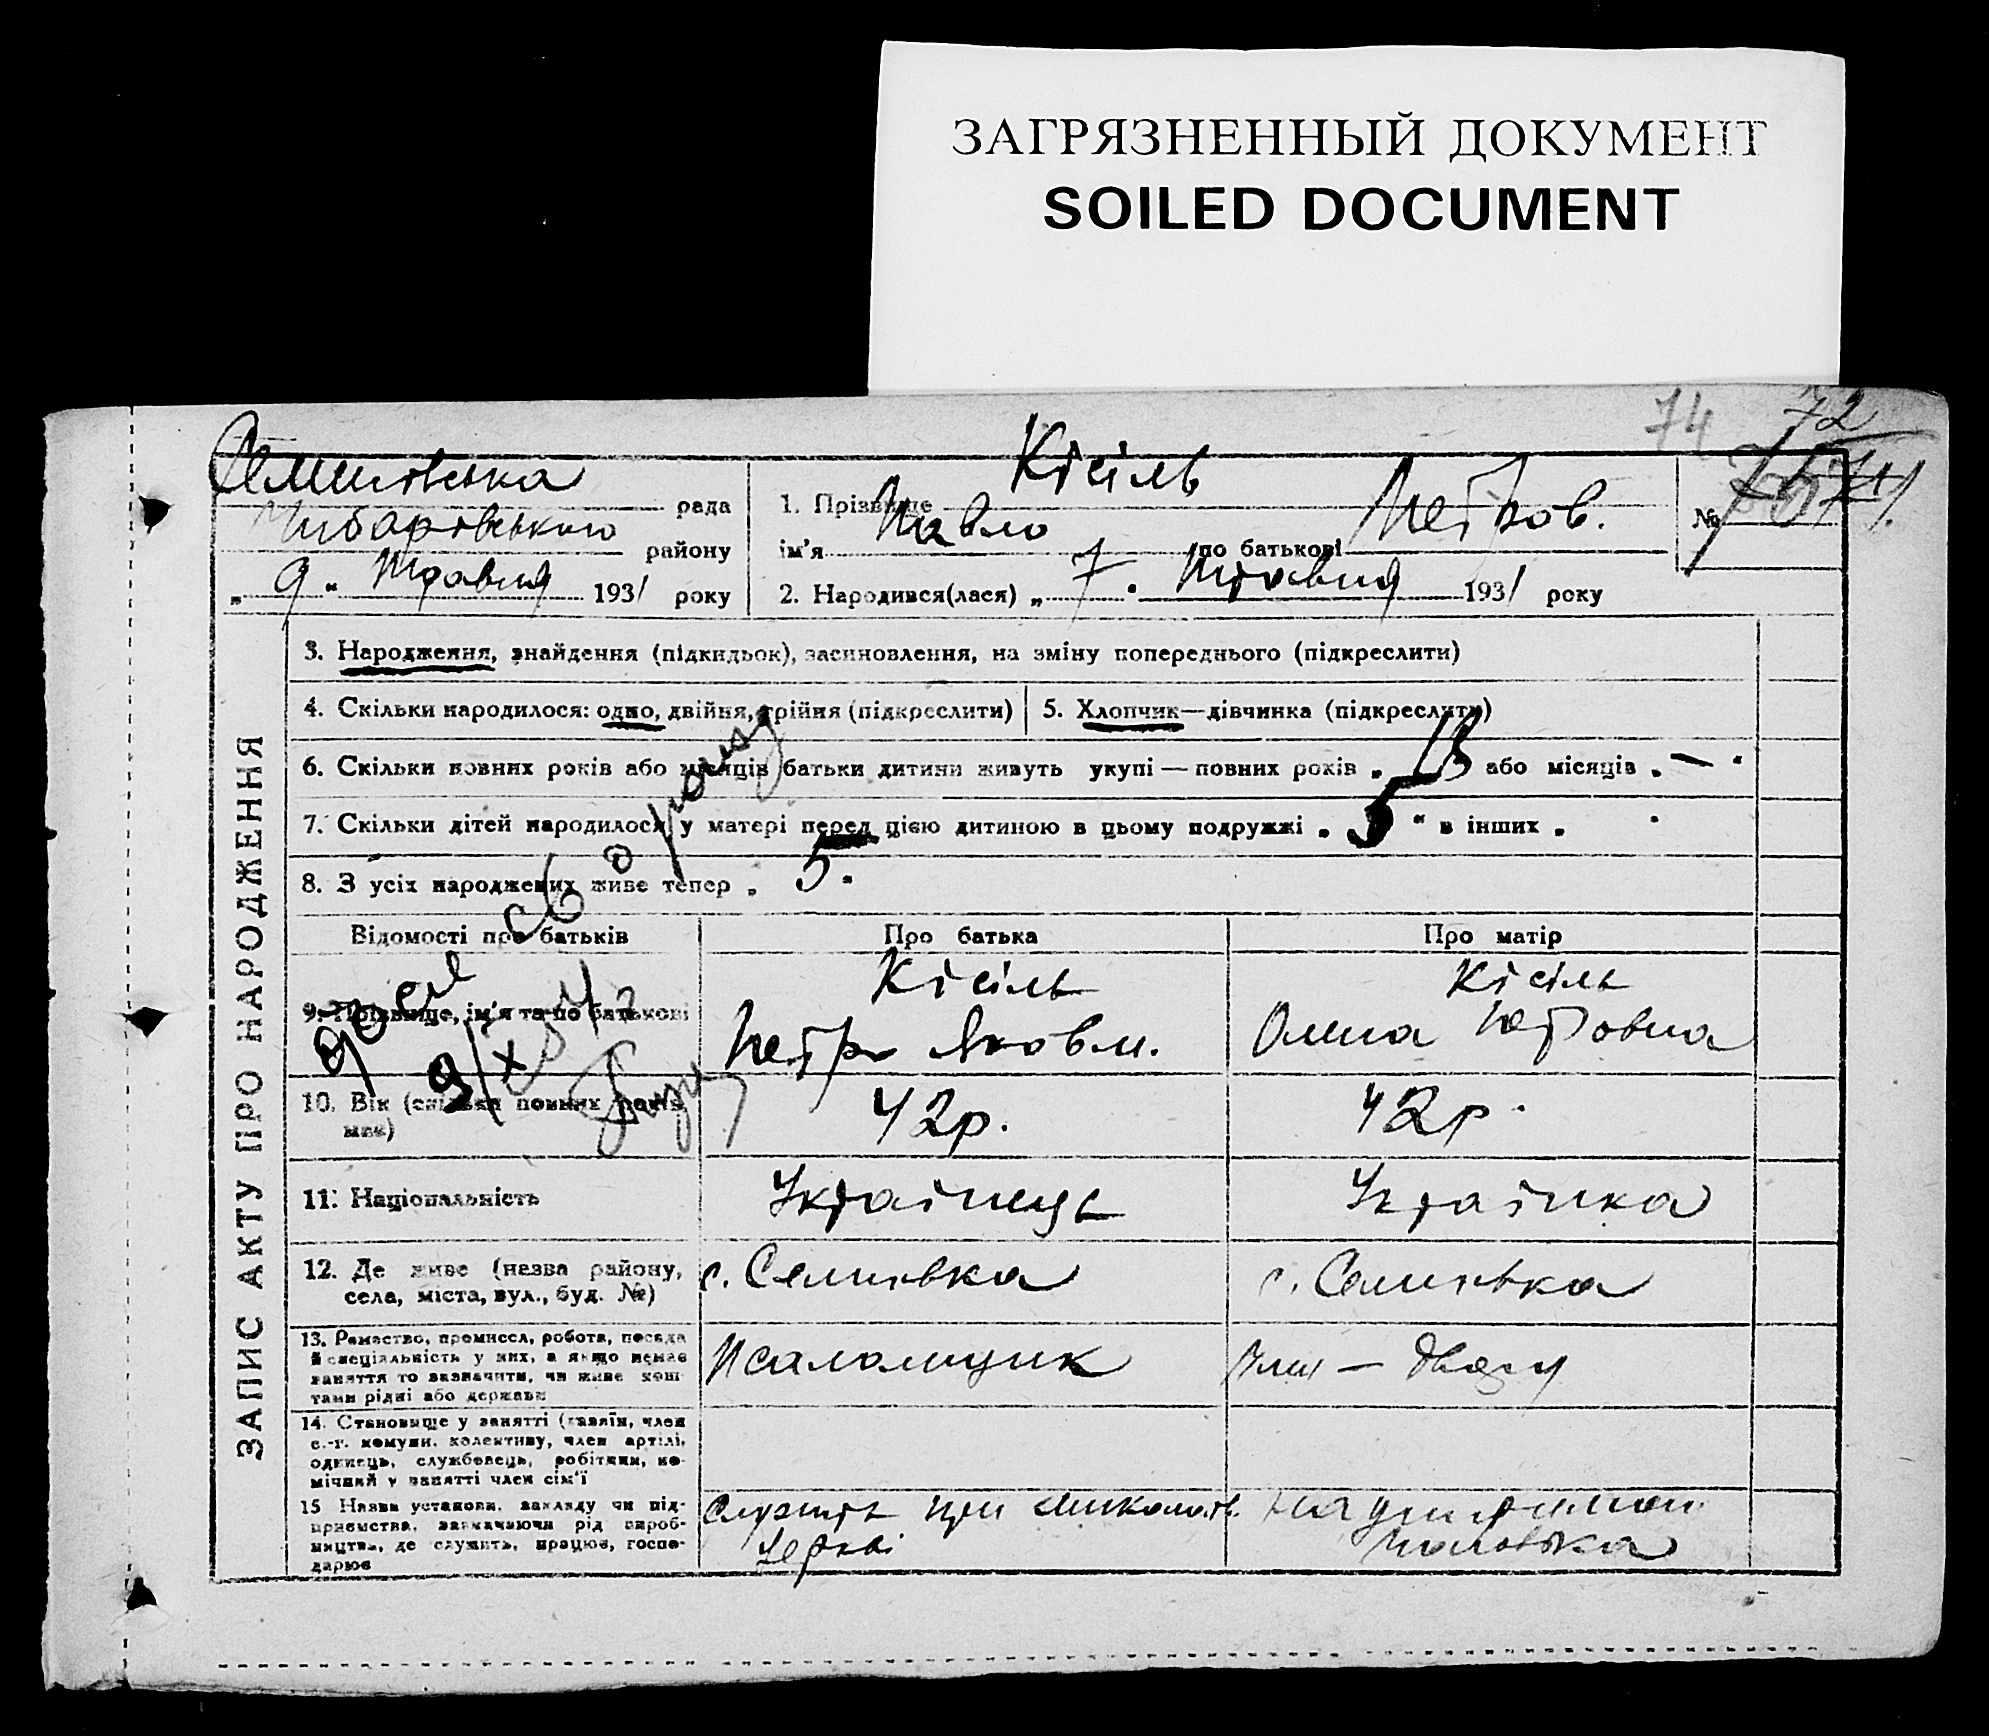 ЗАГРЯЗНЕННЫЙ ДОКУМЕНТ
SOILED DOCUMENT
74 72
рада
району
„ 9 “ Травня 1931 року
1. Прізвище Кісіль
ім'я Павло по батькові Петров.
№
2. Народився(лася) „ 7 . Травня 1931 року
ЗАПИС АКТУ ПРО НАРОДЖЕННЯ
3. Народження, знайдення (підкидьок), засиновлення, на зміну попереднього (підкреслити)
4. Скільки народилося: одно, двійня, трійня (підкреслити)
5. Хлопчик—дівчинка (підкреслити)
6. Скільки повних років або місяців батьки дитини живуть укупі — повних років „ або місяців „ — “
7. Скільки дітей народилося у матері перед цією дитиною в цьому подружжі „ 5 “ в інших „
8. З усіх народжених живе тепер „ 5.
Відомості про батьків
Про батька
Про матір
9. Прізвище, ім'я та по батькові
Кісіль
Петро Яковл.
Кісіль
Олена Петровна
10. Вік (скільки повних років має)
42р.
42р.
11. Національність
Українець
Українка
12. Де живе (назва району,
села, міста, вул., буд. №)
с.
с.
13. Ремество, промисел, робота, посада
й спеціяльність у них, а якщо немає
заняття то зазначити, чи живе кош-
тами рідні або держави
Псаломщик
14. Становище у занятті (хазяїн, член
с.-г. комуни, колективу, член артілі,
одинець, службовець, робітник, по-
мічний у занятті член сім'ї
15 Назва установи, закладу чи під-
приємства, зазначаючи рід вироб-
ництва, де служить, працює, госпо-
дарює
Служить при Миколаїв.
Церкві
на утриманні
чоловіка